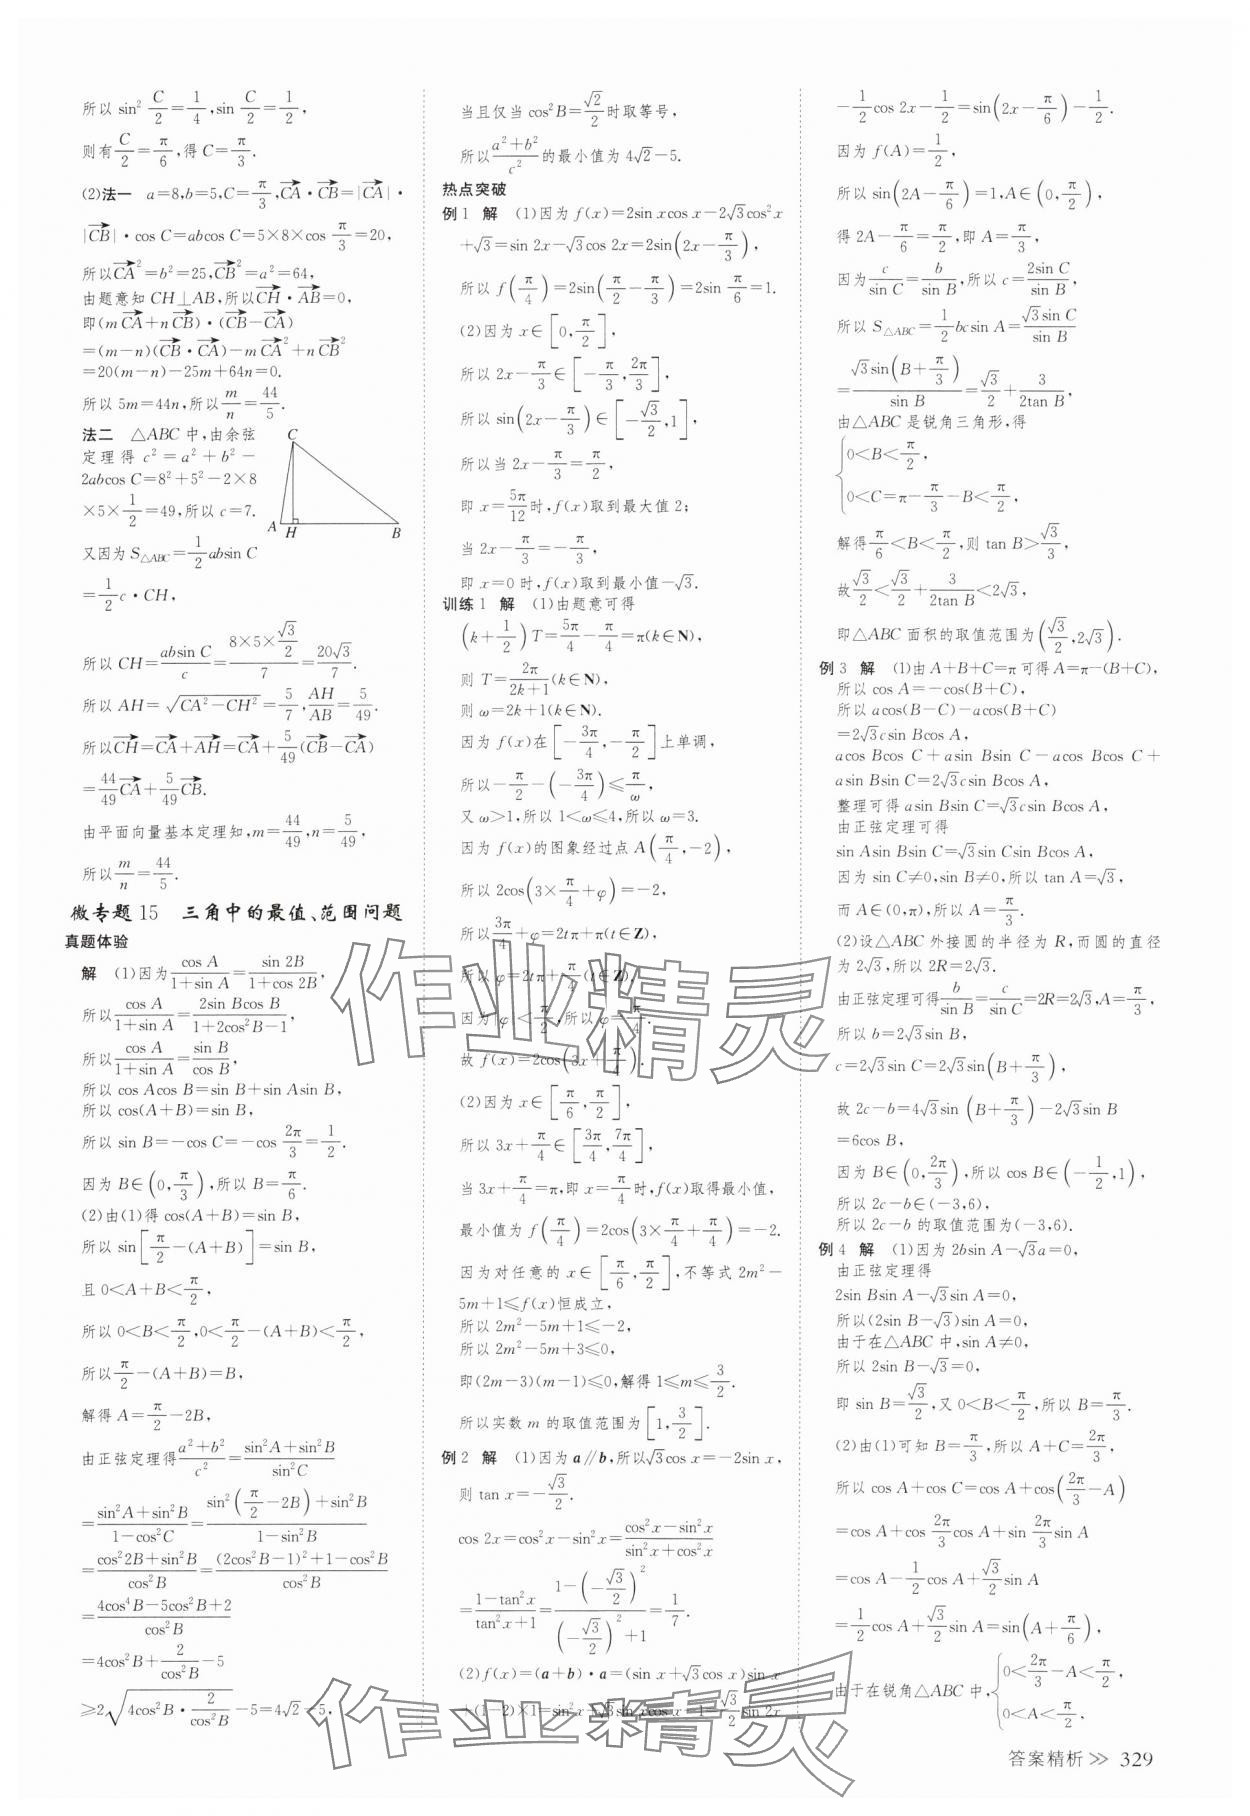 所以 sin² C/2=1/4,sin C/2=1/2,
则有C/2=π/6,得 C=π/3.
(2)法一 a=8,b=5,C=π/3,CA→·CB→=|CA→|·
|CB→|·cos C=abcos C=5×8×cos π/3=20,
所以CA→²=b²=25,CB→²=a²=64,
由题意知 CH⊥AB,所以CH→·AB→=0,
即(mCA→+nCB→)·(CB→-CA→)
=(m-n)(CB→·CA→)-mCA→²+nCB→²
=20(m-n)-25m+64n=0.
所以 5m=44n,所以m/n=44/5.
法二 △ABC 中,由余弦
定理得 c²=a²+b²-
2abcos C=8²+5²-2×8
×5×1/2=49,所以 c=7.
C
A H B
又因为 S△ABC=1/2absin C
=1/2c·CH,
所以 CH=absin C/c=(8×5×√3/2)/7=20√3/7.
所以 AH=√(CA²-CH²)=5/7,AH/AB=5/49.
所以CH→=CA→+AH→=CA→+5/49(CB→-CA→)
=44/49CA→+5/49CB→.
由平面向量基本定理知,m=44/49,n=5/49,
所以m/n=44/5.
微专题 15 三角中的最值、范围问题
真题体验
解 (1)因为cos A/(1+sin A)=sin 2B/(1+cos 2B),
所以cos A/(1+sin A)=2sin Bcos B/(1+2cos²B-1),
所以cos A/(1+sin A)=sin B/cos B,
所以 cos Acos B=sin B+sin Asin B,
所以 cos(A+B)=sin B,
所以 sin B=-cos C=-cos 2π/3=1/2.
因为 B∈(0,π/3),所以 B=π/6.
(2)由(1)得 cos(A+B)=sin B,
所以 sin[π/2-(A+B)]=sin B,
且 0<A+B<π/2,
所以 0<B<π/2,0<π/2-(A+B)<π/2,
所以π/2-(A+B)=B,
解得 A=π/2-2B,
由正弦定理得(a²+b²)/c²=(sin²A+sin²B)/sin²C
=(sin²A+sin²B)/(1-cos²C)=(sin²(π/2-2B)+sin²B)/(1-sin²B)
=(cos²2B+sin²B)/cos²B=((2cos²B-1)²+1-cos²B)/cos²B
=(4cos⁴B-5cos²B+2)/cos²B
=4cos²B+2/cos²B-5
≥2√(4cos²B·2/cos²B)-5=4√2-5,
当且仅当 cos²B=√2/2时取等号,
所以(a²+b²)/c²的最小值为 4√2-5.
热点突破
例 1 解 (1)因为 f(x)=2sin xcos x-2√3cos²x
+√3=sin 2x-√3cos 2x=2sin(2x-π/3),
所以 f(π/4)=2sin(π/2-π/3)=2sin π/6=1.
(2)因为 x∈[0,π/2],
所以 2x-π/3∈[-π/3,2π/3],
所以 sin(2x-π/3)∈[-√3/2,1],
所以当 2x-π/3=π/2,
即 x=5π/12时,f(x)取到最大值 2;
当 2x-π/3=-π/3,
即 x=0 时,f(x)取到最小值-√3.
训练 1 解 (1)由题意可得
(k+1/2)T=5π/4-π/4=π(k∈N),
则 T=2π/(2k+1)(k∈N),
则 ω=2k+1(k∈N).
因为 f(x)在[-3π/4,-π/2]上单调,
所以-π/2-(-3π/4)≤π/ω,
又 ω>1,所以 1<ω≤4,所以 ω=3.
因为 f(x)的图象经过点 A(π/4,-2),
所以 2cos(3×π/4+φ)=-2,
所以3π/4+φ=2tπ+π(t∈Z),
所以 φ=2tπ+π/4(t∈Z).
因为|φ|<π/2,所以 φ=π/4.
故 f(x)=2cos(3x+π/4).
(2)因为 x∈[π/6,π/2],
所以 3x+π/4∈[3π/4,7π/4],
当 3x+π/4=π,即 x=π/4时,f(x)取得最小值,
最小值为 f(π/4)=2cos(3×π/4+π/4)=-2.
因为对任意的 x∈[π/6,π/2],不等式 2m²-
5m+1≤f(x)恒成立,
所以 2m²-5m+1≤-2,
所以 2m²-5m+3≤0,
即(2m-3)(m-1)≤0,解得 1≤m≤3/2.
所以实数 m 的取值范围为[1,3/2].
例 2 解 (1)因为 a∥b,所以√3cos x=-2sin x,
则 tan x=-√3/2.
cos 2x=cos²x-sin²x=(cos²x-sin²x)/(sin²x+cos²x)
=(1-tan²x)/(tan²x+1)=(1-(-√3/2)²)/((-√3/2)²+1)=1/7.
(2)f(x)=(a+b)·a=(sin x+√3cos x)sin x
+(1-2)×1=sin²x+√3sin xcos x-1=√3/2sin 2x
-1/2cos 2x-1/2=sin(2x-π/6)-1/2.
因为 f(A)=1/2,
所以 sin(2A-π/6)=1,A∈(0,π/2),
得 2A-π/6=π/2,即 A=π/3,
因为c/sin C=b/sin B,所以 c=2sin C/sin B,
所以 S△ABC=1/2bcsin A=√3sin C/sin B
=√3sin(B+π/3)/sin B=√3/2+3/(2tan B),
由△ABC 是锐角三角形,得
{0<B<π/2,
0<C=π-π/3-B<π/2,
解得π/6<B<π/2,则 tan B>√3/3,
故√3/2<√3/2+3/(2tan B)<2√3,
即△ABC 面积的取值范围为(√3/2,2√3).
例 3 解 (1)由 A+B+C=π 可得 A=π-(B+C),
所以 cos A=-cos(B+C),
所以 acos(B-C)-acos(B+C)
=2√3csin Bcos A,
acos Bcos C+asin Bsin C-acos Bcos C+
asin Bsin C=2√3csin Bcos A,
整理可得 asin Bsin C=√3csin Bcos A,
由正弦定理可得
sin Asin Bsin C=√3sin Csin Bcos A,
因为 sin C≠0,sin B≠0,所以 tan A=√3,
而 A∈(0,π),所以 A=π/3.
(2)设△ABC 外接圆的半径为 R,而圆的直径
为 2√3,所以 2R=2√3,
由正弦定理可得b/sin B=c/sin C=2R=2√3,A=π/3,
所以 b=2√3sin B,
c=2√3sin C=2√3sin(B+π/3),
故 2c-b=4√3sin(B+π/3)-2√3sin B
=6cos B,
因为 B∈(0,2π/3),所以 cos B∈(-1/2,1),
所以 2c-b∈(-3,6),
所以 2c-b 的取值范围为(-3,6).
例 4 解 (1)因为 2bsin A-√3a=0,
由正弦定理得
2sin Bsin A-√3sin A=0,
所以(2sin B-√3)sin A=0,
由于在△ABC 中,sin A≠0,
所以 2sin B-√3=0,
即 sin B=√3/2,又 0<B<π/2,所以 B=π/3.
(2)由(1)可知 B=π/3,所以 A+C=2π/3,
所以 cos A+cos C=cos A+cos(2π/3-A)
=cos A+cos 2π/3cos A+sin 2π/3sin A
=cos A-1/2cos A+√3/2sin A
=1/2cos A+√3/2sin A=sin(A+π/6),
由于在锐角△ABC 中,{0<2π/3-A<π/2,
0<A<π/2,
作业精灵
作业精灵
答案精析 >> 329